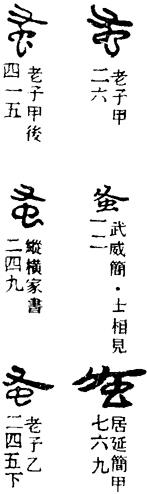 蚤
老子甲
二六
蚤
武威簡・士相見
一二
蚤
居延簡甲
七六九
蚤
老子甲後
四一五
蚤
縱橫家書
二四九
蚤
老子乙
二四五下